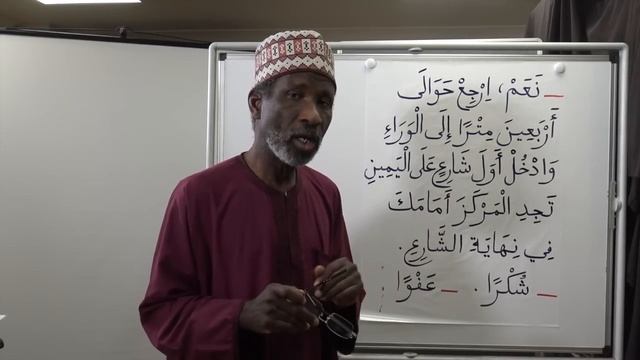 _ نَعَمْ، اِرْجِعْ حَوَالَى
أَرْبَعِينَ مِتْرًا إِلَى الْوَرَاءِ
وَادْخُلْ أَوَّلَ شَارِعٍ عَلَى الْيَمِينِ
تَجِدِ الْمَرْكَزَ أَمَامَكَ
فِي نِهَايَةِ الشَّارِعِ.
_ شُكْرًا. _ عَفْوًا